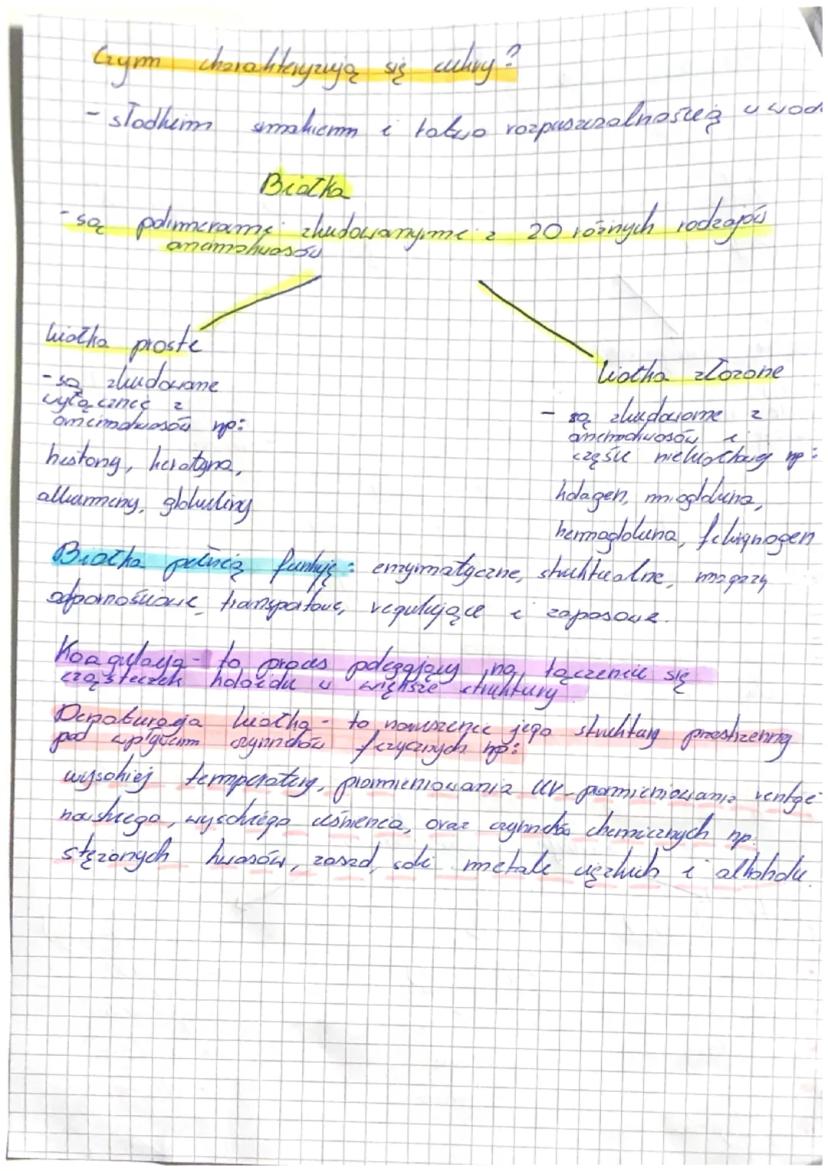 Czym charakteryzują się cukry?
- słodkim smakiem i łatwo rozpuszczalnością w wod
Białka
- są polimerami zbudowanymi z 20 różnych rodzajów
aminokwasów
białka proste
- są zbudowane
wyłącznie z
aminokwasów np:
histony, keratyna,
albuminy, globuliny
białka złożone
- są zbudowane z
aminokwasów i
części niebiałkowej np:
kolagen, mioglobina,
hemoglobina, fibrynogen
Białka pełnią funkcję: enzymatyczne, strukturalne, magazy
odpornościowe, transportowe, regulujące i zapasowe.
Koagulacja - to proces polegający na łączeniu się
cząsteczek koloidu w większe struktury
Denaturacja białka - to naruszenie jego struktury przestrzennej
pod wpływem czynników fizycznych np:
wysokiej temperatury, promieniowania UV, promieniowania rentge
nowskiego, wysokiego ciśnienia, oraz czynników chemicznych np.
stężonych kwasów, zasad, soli metali ciężkich i alkoholu.